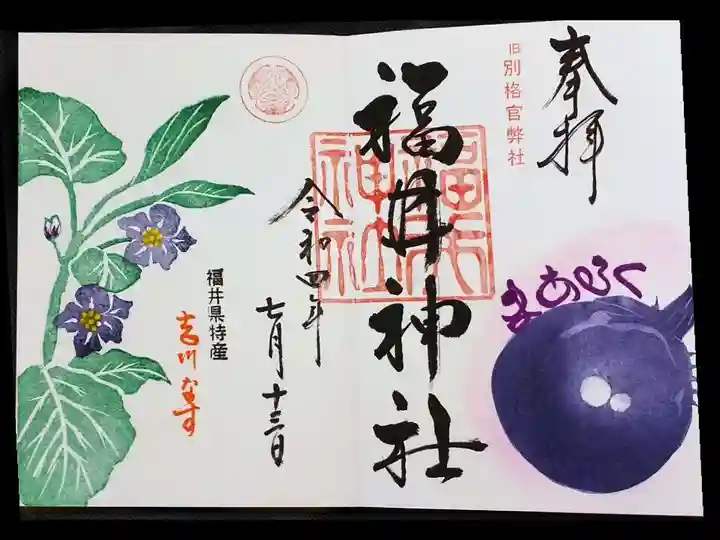 奉拝
旧別格官弊社
まあるく
福井神社
令和四年
七月十三日
福井県特産
吉川なす